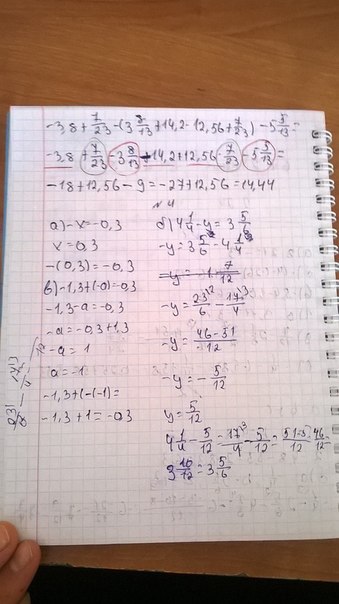 -3,8+7/23-(3 8/13+14,2-12,56+7/23)-5 5/13=
-3,8+7/23-3 8/13-14,2+12,56-7/23-5 5/13=
-18+12,56-9=-27+12,56=14,44
№4
а)-x=-0,3
x=0,3
-(0,3)=-0,3
в)-1,3+(-a)=-0,3
-1,3-a=-0,3
-a=-0,3+1,3
-a=1
a=-1
-1,3+(-(-1)=
-1,3+1=-0,3
б)4 1/4-y=3 5/6
-y=3 5/6-4 1/4
-y=-1 7/12
-y=23/6-17/4
-y=46-51/12
-y=-5/12
y=5/12
4 1/4-5/12=17/4-5/12=51-5/12=46/12
3 10/12=3 5/6